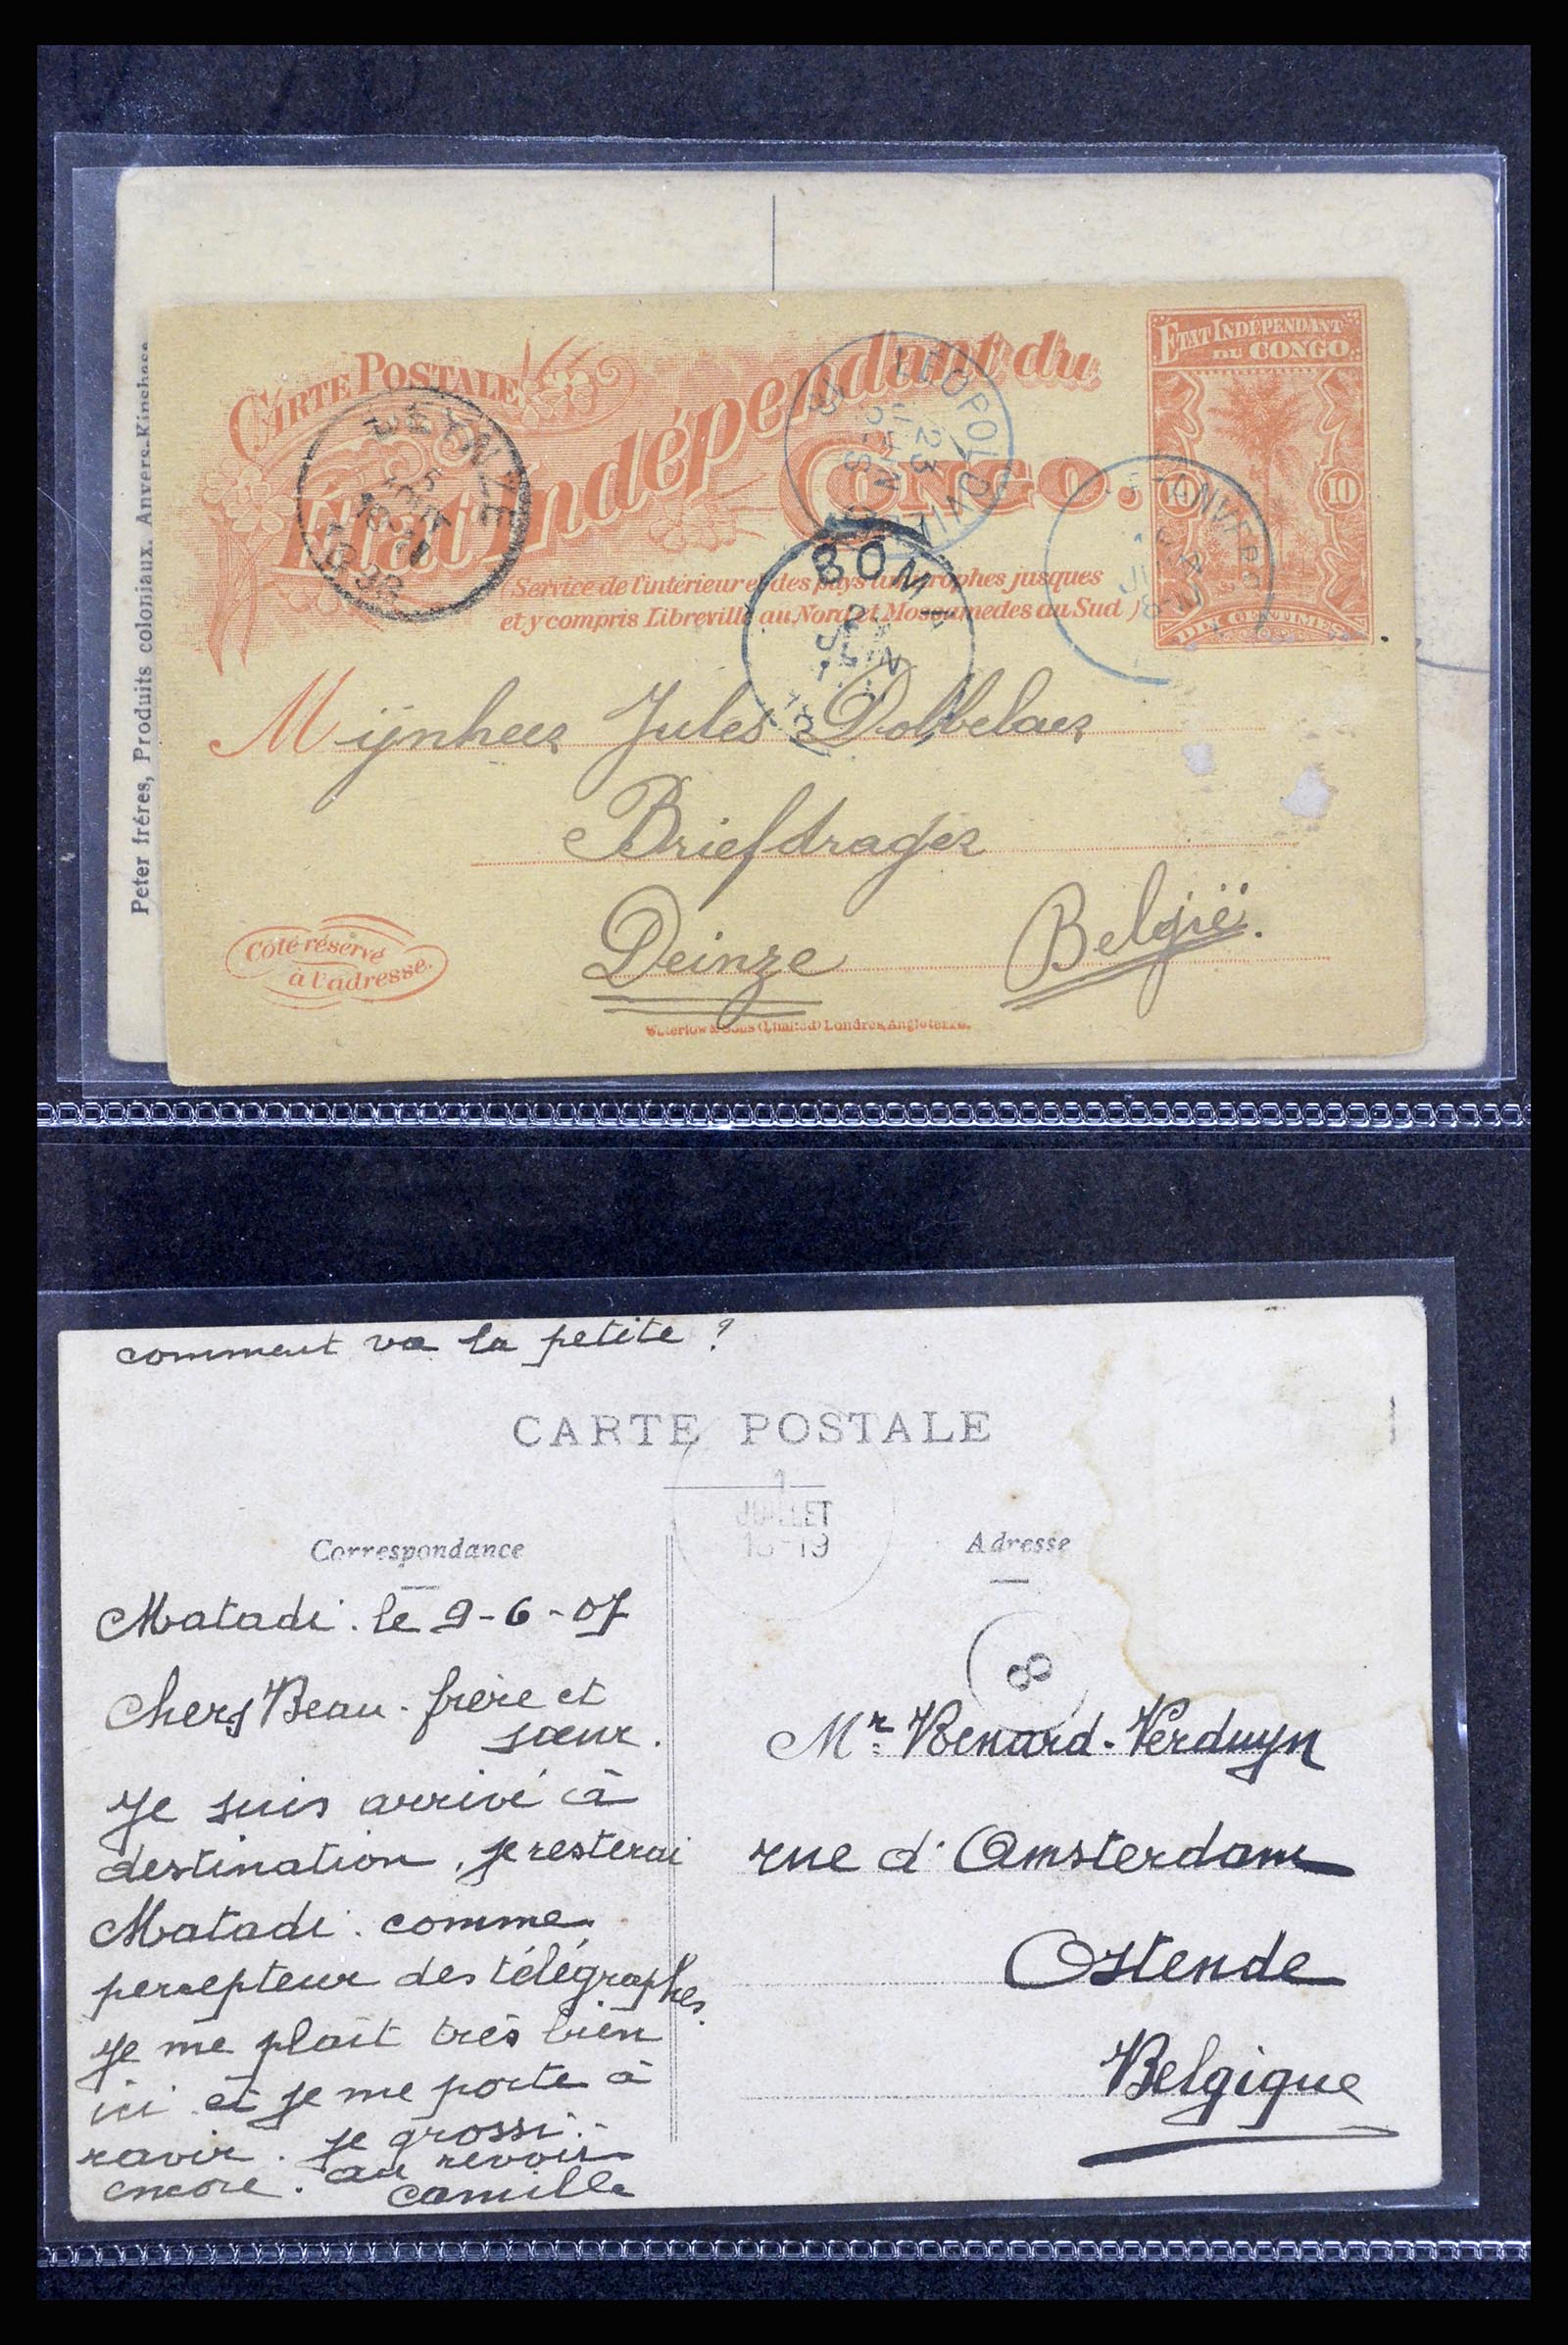 Peter fréres, Produits coloniaux. Anvers-Kinchasa
CARTE POSTALE
État Indépendant du
CONGO.
(Service de l'intérieur et des pays limitrophes jusques
et y compris Libreville au Nord et Mossamedes au Sud)
ETAT INDÉPENDANT
DU CONGO.
10
10
DIX CENTIMES
DEYNZE
LEOPOLDVILLE
23
BOMA
JUIN
ANVERS
Mijnheer Jules Dobbelaer
Briefdrager
Deinze België.
Côté réservé
à l'adresse.
Waterlow & Sons (Limited) Londres, Angleterre.
comment va la petite ?
CARTE POSTALE
1
JUILLET
18-19
Correspondance
Adresse
8
Matadi. le 9-6-07
Chers Beau-frère et
sœur.
Je suis arrivé à
destination, je resterai
Matadi. comme
percepteur des télégraphes.
Je me plait très bien
ici et je me porte à
ravir. je grossi
encore. au revoir
Camille
Mr Benard-Verduyn
rue d'Amsterdam
Ostende
Belgique